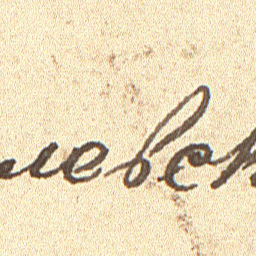 левск